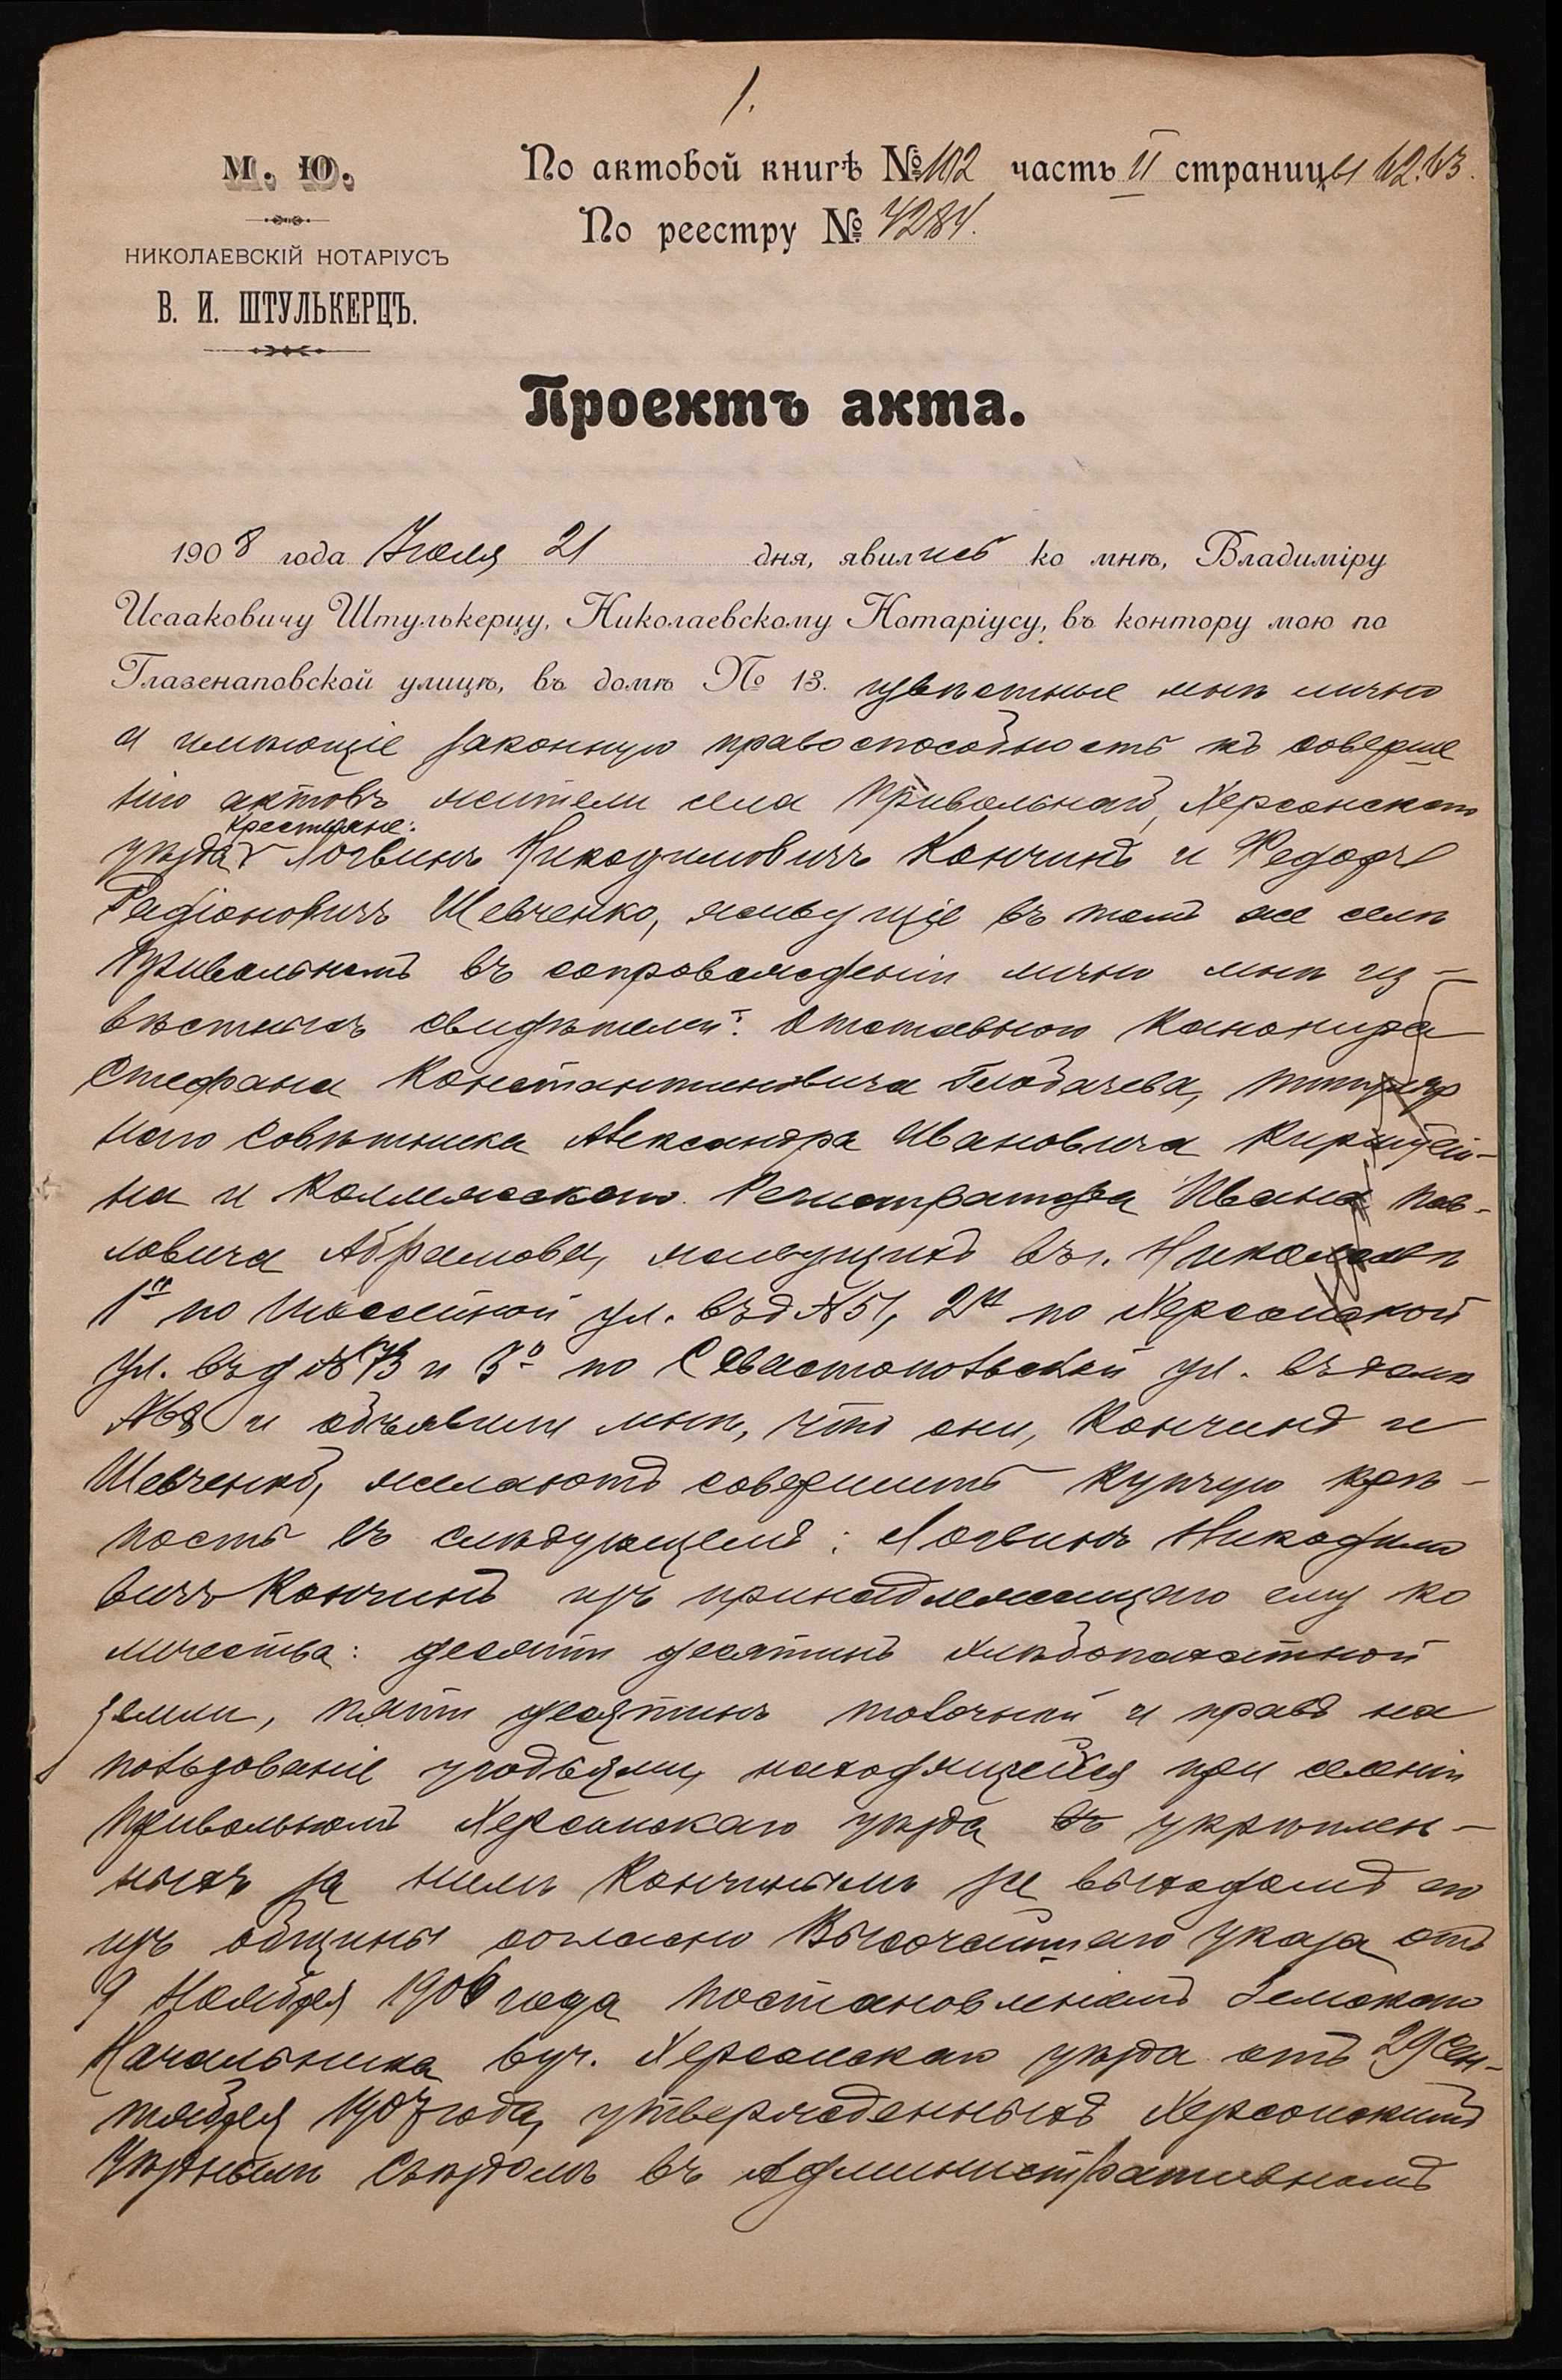 1.
М. Ю.
По актовой книгѣ № 102 часть II страницы 62.63.
По реестру № 4284.
НИКОЛАЕВСКІЙ НОТАРІУСЪ
В. И. ШТУЛЬКЕРЦЪ.
Проектъ акта.
1908 года Іюля 21 дня, явились ко мнѣ, Владиміру
Исааковичу Штулькерцу, Николаевскому Нотаріусу, въ контору мою по
Глазенаповской улицѣ, въ домѣ № 13. извѣстные мнѣ лично
и имѣющіе законную правоспособность къ соверше
нію актовъ жители села Привольнаго, Херсонскаго
крестьяне:
уѣзда Логвинъ Никодимовичъ Кончинъ и Федоръ
Радіоновичъ Шевченко, живущіе въ томъ же селѣ
Привольномъ въ сопровожденіи лично мнѣ из-
вѣстныхъ свидѣтелей: отставного канонира
Стефана Константиновича Глобачева, титуляр
наго совѣтника Александра Ивановича Кирштей-
на и Коллежскаго Регистратора Ивана Пав-
ловича Абрамова, живущихъ въ г. Николаевѣ
1й по Шоссейной ул. въ д № 51, 2й по Херсонской
ул. въ д № 73 и 3й по Севастопольской ул. въ домѣ
и объявили мнѣ, что они, Кончинъ и
Шевченко, желаютъ совершить купчую крѣ-
пость въ слѣдующемъ: Логвинъ Никодимо
вичъ Кончинъ изъ принадлежащаго ему ко
личества: десяти десятинъ хлѣбопахатной
земли, пяти десятинъ толочной и правъ на
пользованіе угодьями, находящейся при селеніи
Привольномъ Херсонскаго уѣзда въ укрѣплен-
ныхъ за нимъ Кончинымъ за выходомъ его
изъ общины согласно Высочайшаго указа отъ
9 Ноября 1906 года постановленіемъ Земскаго
Начальника 6 уч. Херсонскаго уѣзда отъ 29 Сен-
тября 1907 года, утвержденныхъ Херсонскимъ
Уѣзднымъ Съѣздомъ въ Административномъ